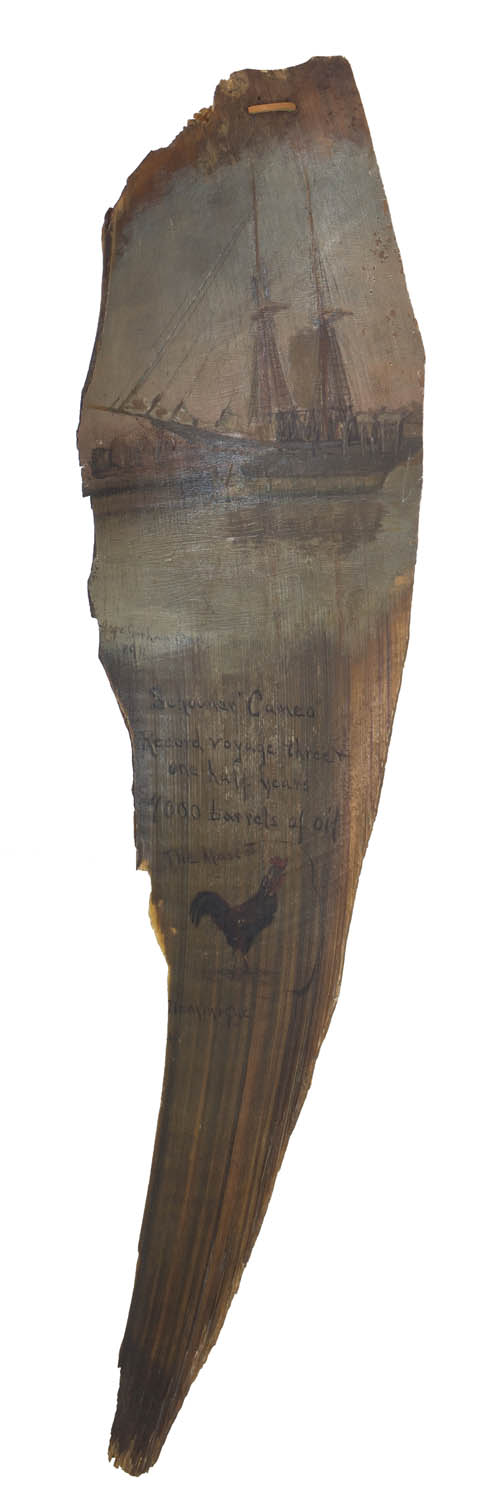 Schooner "Cameo
Record voyage three +
one half years
9000 barrels of oil
The Mascot